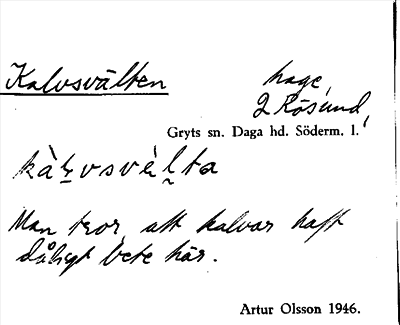 Kalvsvälten
hage,
2 Rösund,
Gryts sn. Daga hd. Söderm. l.
Man tror, att kalvar haft
dåligt bete här.
Artur Olsson 1946.